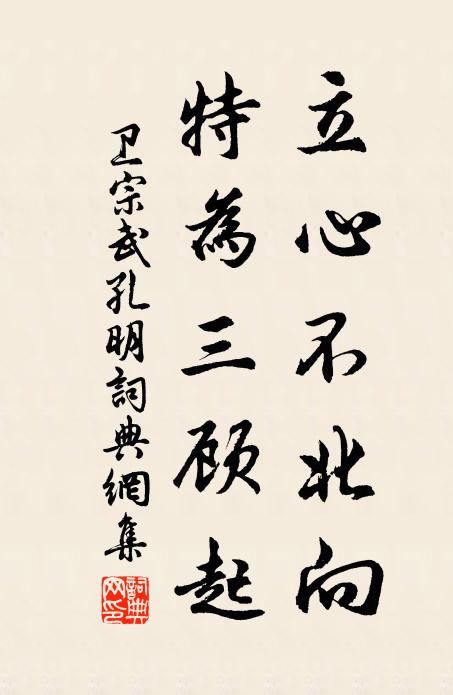 立心不北向
特為三顾起
卫宗武孔明詞典網集
詞典网印